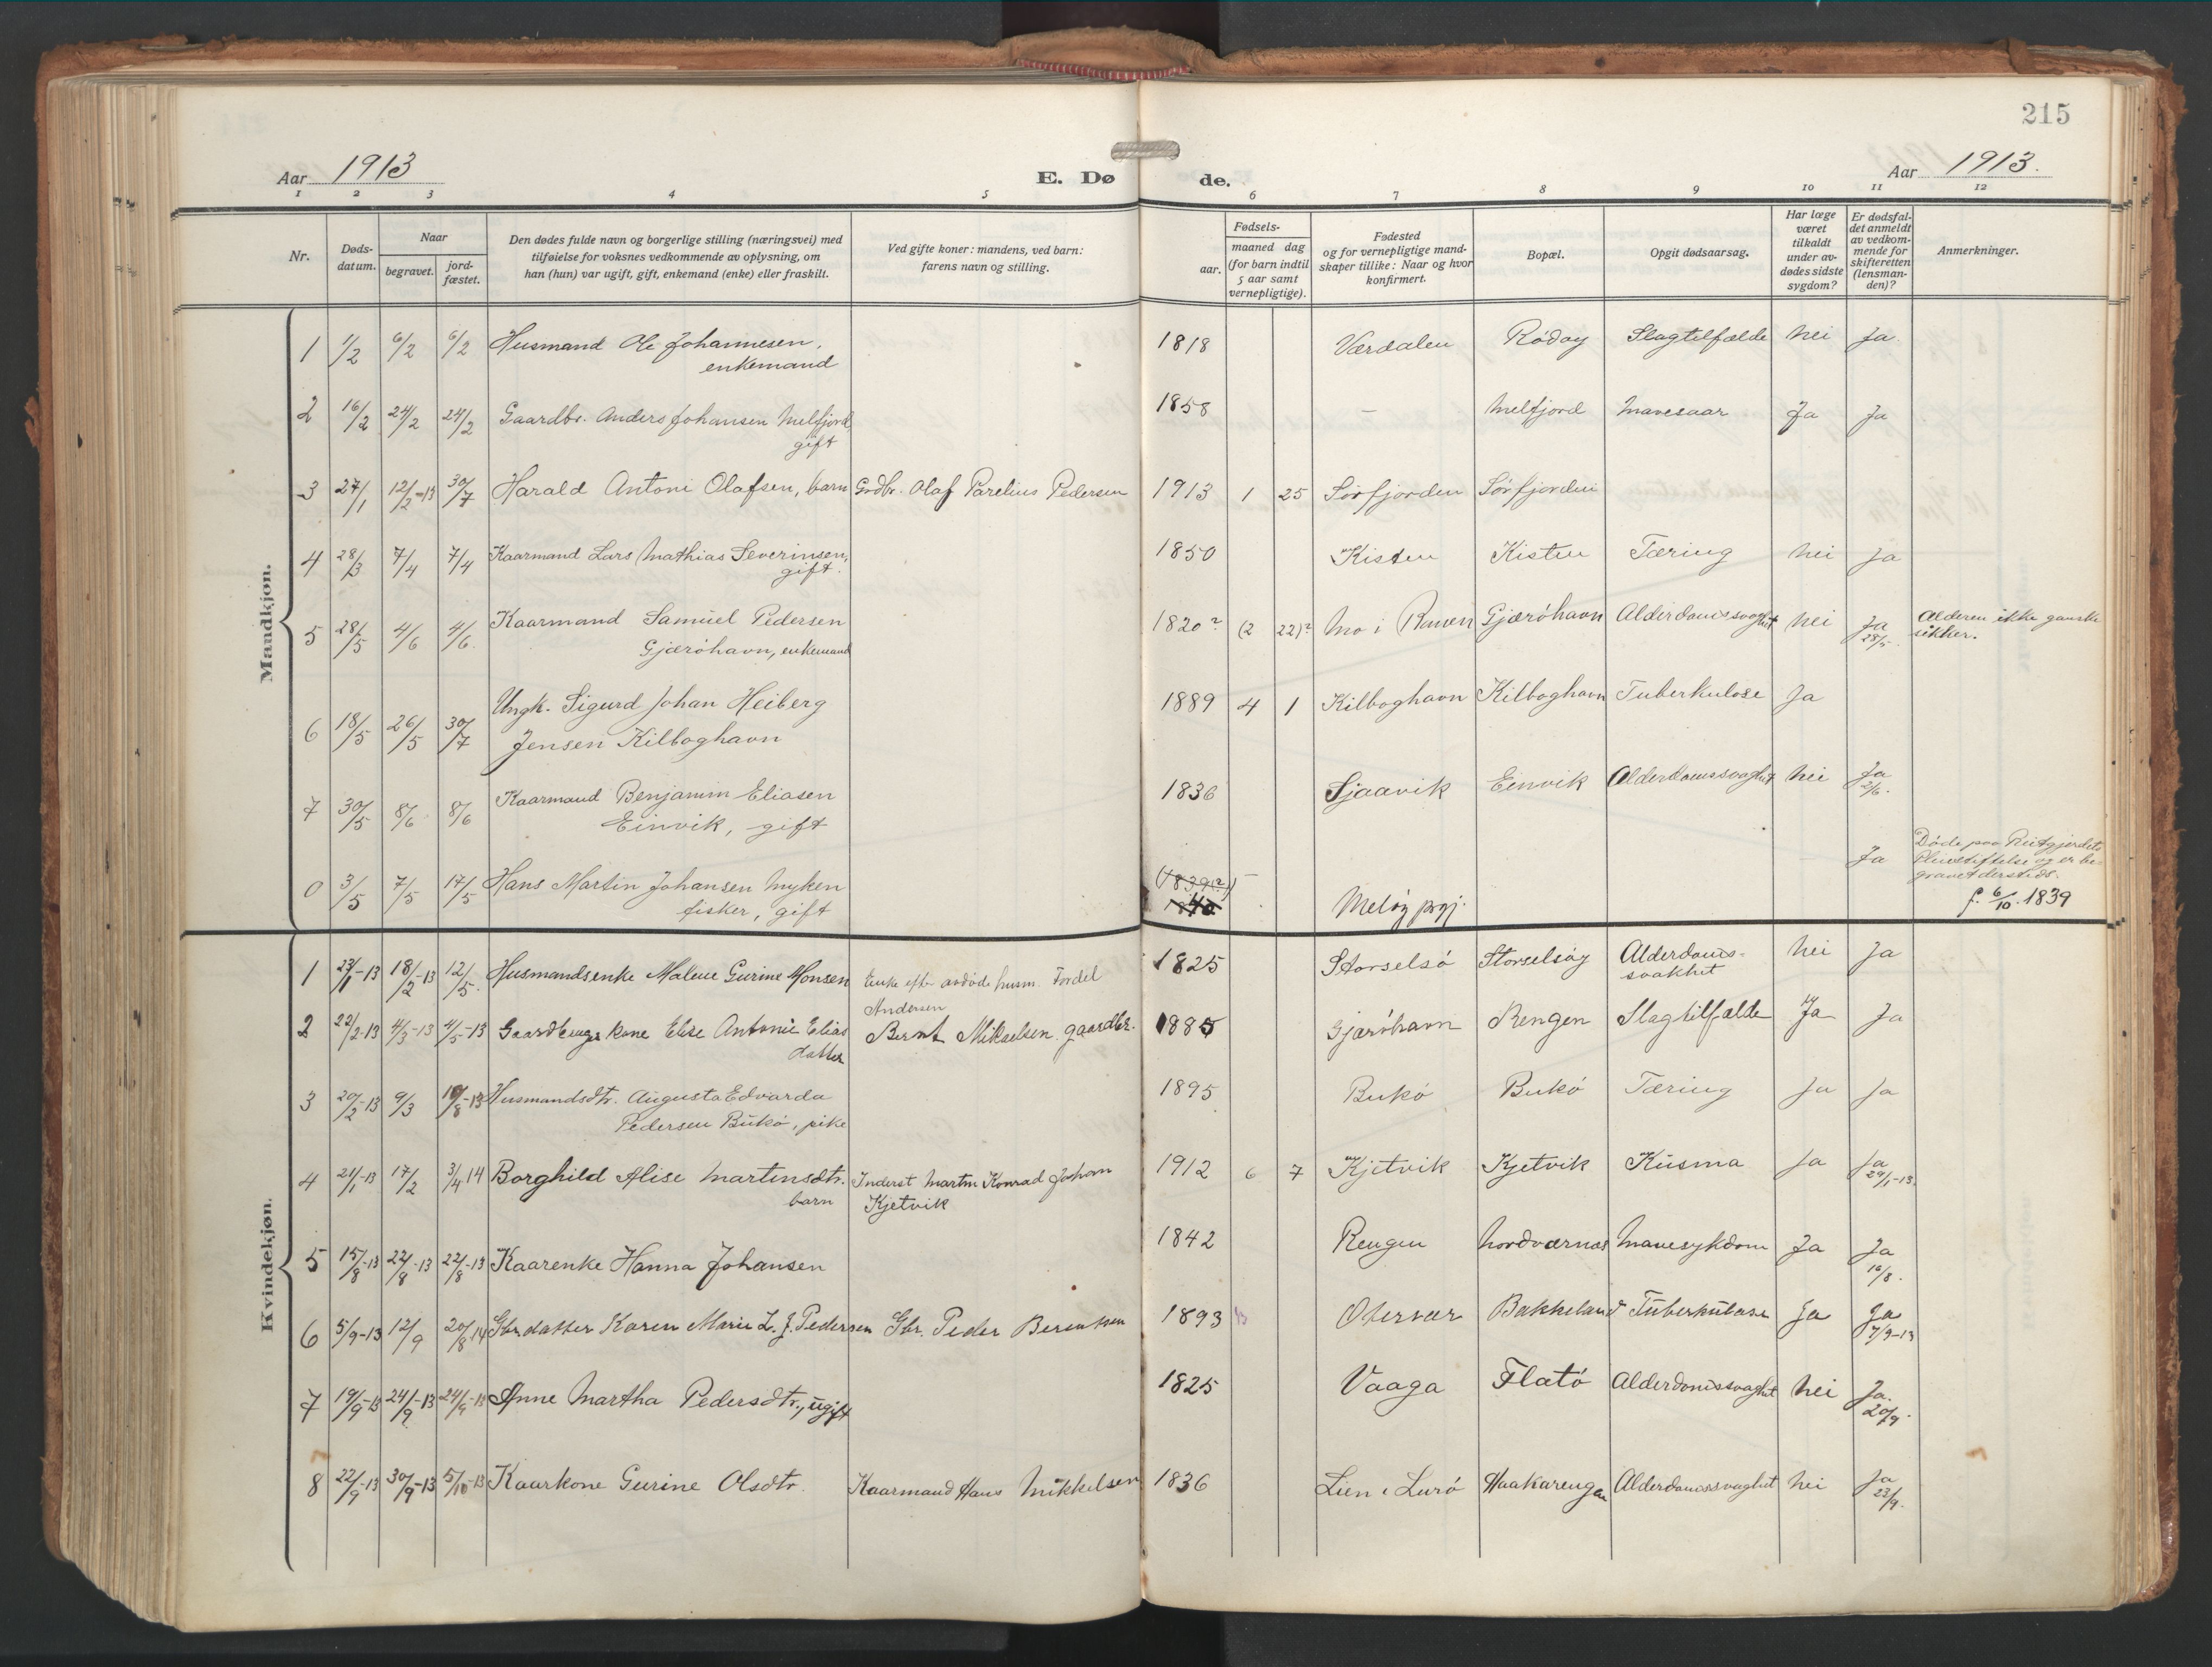 215
Aar 1913
E. Dø
de.
Aar 1913.
1 2 3 4 5 6 7 8 9 10 11 12
Nr.
Døds-
datum.
Naar
begravet.
jord-
fæstet.
Den dødes fulde navn og borgerlige stilling (næringsvei) med
tilføielse for voksnes vedkommende av oplysning, om
han (hun) var ugift, gift, enkemand (enke) eller fraskilt.
Ved gifte koner: mandens, ved barn:
farens navn og stilling.
Fødsels-
aar.
maaned dag
(for barn indtil
5 aar samt
vernepligtige).
Fødested
og for vernepligtige mand-
skaper tillike: Naar og hvor
konfirmert.
Bopæl.
Opgit dødsaarsag.
Har læge
været
tilkaldt
under av-
dødes sidste
sygdom?
Er dødsfal-
det anmeldt
av vedkom-
mende for
skifteretten
(lensman-
den)?
Anmerkninger.
Mandkjøn.
1 1/2 6/2 6/2 Husmand Ole Johannesen, 1818 Værdalen Rödøy Slagtilfælde Nei Ja.
enkemand
2 16/2 24/2 24/2 Gaardbr. Anders Johansen Melfjord 1858 — Melfjord Mavesaar Ja Ja
gift
3 27/1 12/2-13 30/7 Harald Antoni Olafsen, barn Grdbr. Olaf Parelius Pedersen 1913 1 25 Sörfjorden Sörfjorden
4 28/3 7/4 7/4 Kaarmand Lars Mathias Severinsen, 1850 Kisten Kisten Tæring Nei Ja
gift.
5 28/5 4/6 4/6. Kaarmand Samuel Pedersen 1820? (2 22)? Mo i Ranen Gjæröhavn Alderdomssvaghet Nei Ja 28/5. Alderen ikke ganske
Gjæröhavn, enkemand sikker.
6 18/5 26/5 30/7 Ungk. Sigurd Johan Heiberg 1889 4 1 Kilboghavn Kilboghavn Tuberkulose Ja
Jensen Kilboghavn
7 30/5 8/6 8/6 Kaarmand Benjamin Eliasen 1836 Sjaavik Einvik Alderdomssvaghet Nei Ja 2/6.
Einvik, gift
0 3/5 7/5 17/5 Hans Martin Johansen Myken (1839(?)) Meløy prgj. Ja Döde paa Reitgjerdets
fisker, gift Pleiestiftelse og er be-
gravet dersteds.
f. 6/10. 1839
Kvindekjøn.
1 23/1-13 18/2-13 12/5. Husmandsenke Malene Gurine Monsen Enke efter avdöde husm. Fordel 1825 Storselsö Storselsöy Alderdoms- Nei Ja
Andersen svakhet
2 22/2-13 4/3-13 4/5-13 Gaardbruger kone Else Antonie Elias Bernt Mikaelsen gaardbr. 1885 Gjæröhavn Rengen Slagtilfælde Ja Ja
datter
3 20/2-13 9/3 10/8-13 Husmandsdtr. Augusta Edvarda 1895 Bukö Bukö Tæring Ja Ja
Pedersen Bukö, pike
4 21/1-13 17/2 3/4 14 Borghild Alise Martinsdtr. Inderst Martin Konrad Johan 1912 6 7 Kjetvik Kjetvik Kusma Ja Ja 29/1-13.
barn Kjetvik
5 15/8-13 22/8-13 22/8-13 Kaarenke Hanna Johansen 1842 Rengen Nordværnes Mavesykdom Ja Ja 16/8.
6 5/9-13 12/9 20/8 14 Gbr.datter Karen Marie L. J. Pedersen Gbr. Peder Berentsen 1893 Otervær Bakkeland Tuberkulose Ja Ja 7/9-13
7 19/9-13 24/9-13 24/9-13 Anne Martha Pedersdtr., ugift 1825 Vaaga Flatö Alderdomssvaghet Nei Ja. 20/9.
8 22/9-13 30/9-13 5/10-13 Kaarkone Gurine Olsdtr. Kaarmand Hans Mikkelsen 1836 Lien i Lurö Haakarengen Alderdomssvaghet Nei Ja 23/9.